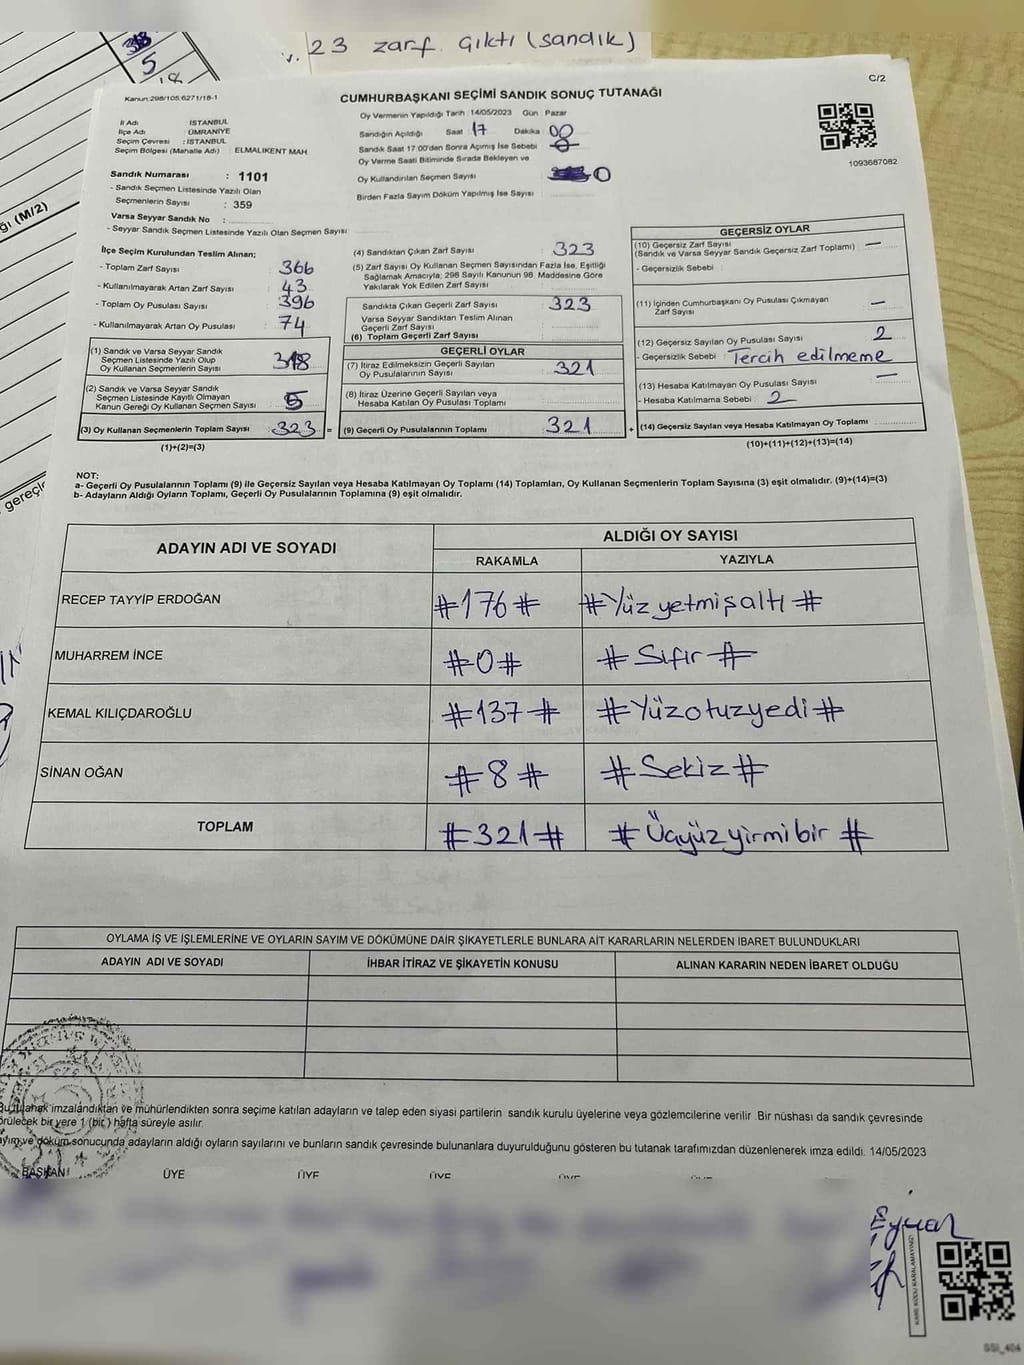 23 zarf çıktı (sandık)
5
C/2
Kanun:298/105,6271/18-1
CUMHURBAŞKANI SEÇİMİ SANDIK SONUÇ TUTANAĞI
Oy Vermenin Yapıldığı Tarih :14/05/2023 Gün : Pazar
İl Adı : İSTANBUL
İlçe Adı : ÜMRANİYE
Seçim Çevresi : İSTANBUL
Seçim Bölgesi (Mahalle Adı) : ELMALIKENT MAH.
Sandığın Açıldığı Saat :17 Dakika : 00
Sandık Saat 17.00'den Sonra Açımış İse Sebebi :
Oy Verme Saati Bitiminde Sırada Bekleyen ve
Oy Kullandırılan Seçmen Sayısı : 0
Birden Fazla Sayım Döküm Yapılmış İse Sayısı :
1093687082
Sandık Numarası : 1101
- Sandık Seçmen Listesinde Yazılı Olan
Seçmenlerin Sayısı : 359
Varsa Seyyar Sandık No :
- Seyyar Sandık Seçmen Listesinde Yazılı Olan Seçmen Sayısı:
İlçe Seçim Kurulundan Teslim Alınan;
- Toplam Zarf Sayısı : 366
- Kullanılmayarak Artan Zarf Sayısı : 43
- Toplam Oy Pusulası Sayısı : 396
- Kullanılmayarak Artan Oy Pusulası : 74
(1) Sandık ve Varsa Seyyar Sandık
Seçmen Listesinde Yazılı Olup
Oy Kullanan Seçmenlerin Sayısı : 318
(2) Sandık ve Varsa Seyyar Sandık
Seçmen Listesinde Kayıtlı Olmayan
Kanun Gereği Oy Kullanan Seçmen Sayısı : 5
(3) Oy Kullanan Seçmenlerin Toplam Sayısı : 323 =
(1)+(2)=(3)
(4) Sandıktan Çıkan Zarf Sayısı : 323
(5) Zarf Sayısı Oy Kullanan Seçmen Sayısından Fazla İse, Eşitliği
Sağlamak Amacıyla; 298 Sayılı Kanunun 98. Maddesine Göre
Yakılarak Yok Edilen Zarf Sayısı :
Sandıkta Çıkan Geçerli Zarf Sayısı : 323
Varsa Seyyar Sandıktan Teslim Alınan
Geçerli Zarf Sayısı :
(6) Toplam Geçerli Zarf Sayısı :
GEÇERLİ OYLAR
(7) İtiraz Edilmeksizin Geçerli Sayılan
Oy Pusulalarının Sayısı : 321
(8) İtiraz Üzerine Geçerli Sayılan veya
Hesaba Katılan Oy Pusulası Toplamı :
(9) Geçerli Oy Pusulalarının Toplamı : 321 +
GEÇERSİZ OYLAR
(10) Geçersiz Zarf Sayısı : —
(Sandık ve Varsa Seyyar Sandık Geçersiz Zarf Toplamı)
- Geçersizlik Sebebi :
(11) İçinden Cumhurbaşkanı Oy Pusulası Çıkmayan
Zarf Sayısı : —
(12) Geçersiz Sayılan Oy Pusulası Sayısı : 2
- Geçersizlik Sebebi : Tercih edilmeme
(13) Hesaba Katılmayan Oy Pusulası Sayısı : —
- Hesaba Katılmama Sebebi : 2
(14) Geçersiz Sayılan veya Hesaba Katılmayan Oy Toplamı :
(10)+(11)+(12)+(13)=(14)
NOT:
a- Geçerli Oy Pusulalarının Toplamı (9) ile Geçersiz Sayılan veya Hesaba Katılmayan Oy Toplamı (14) Toplamları, Oy Kullanan Seçmenlerin Toplam Sayısına (3) eşit olmalıdır. (9)+(14)=(3)
b- Adayların Aldığı Oyların Toplamı, Geçerli Oy Pusulalarının Toplamına (9) eşit olmalıdır.
ADAYIN ADI VE SOYADI
ALDIĞI OY SAYISI
RAKAMLA YAZIYLA
RECEP TAYYİP ERDOĞAN #176# #Yüzyetmişaltı#
MUHARREM İNCE #0# #Sıfır#
KEMAL KILIÇDAROĞLU #137# #Yüzotuzyedi#
SİNAN OĞAN #8# #Sekiz#
TOPLAM #321# #Üçyüzyirmibir#
OYLAMA İŞ VE İŞLEMLERİNE VE OYLARIN SAYIM VE DÖKÜMÜNE DAİR ŞİKAYETLERLE BUNLARA AİT KARARLARIN NELERDEN İBARET BULUNDUKLARI
ADAYIN ADI VE SOYADI İHBAR İTİRAZ VE ŞİKAYETİN KONUSU ALINAN KARARIN NEDEN İBARET OLDUĞU
Bu tutanak imzalandıktan ve mühürlendikten sonra seçime katılan adayların ve talep eden siyasi partilerin sandık kurulu üyelerine veya gözlemcilerine verilir. Bir nüshası da sandık çevresinde
görülecek bir yere 1 (bir) hafta süreyle asılır.
ayım ve döküm sonucunda adayların aldığı oyların sayılarını ve bunların sandık çevresinde bulunanlara duyurulduğunu gösteren bu tutanak tarafımızdan düzenlenerek imza edildi. 14/05/2023
BAŞKAN ÜYE ÜYE ÜYE ÜYE ÜYE